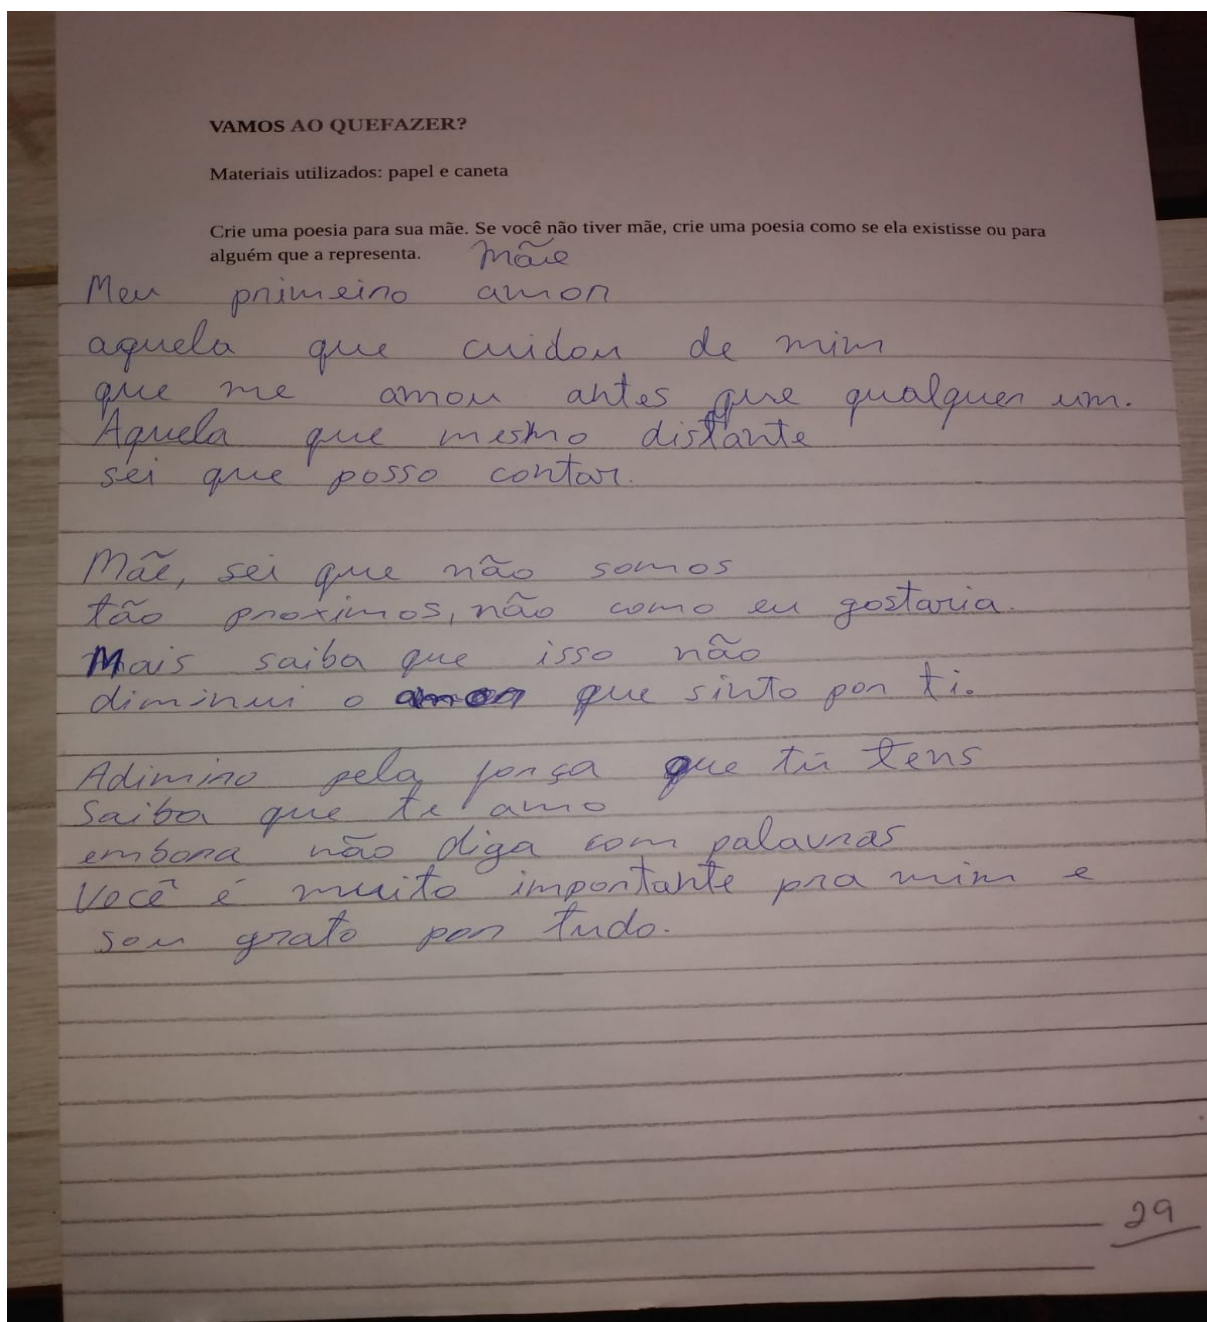 VAMOS AO QUEFAZER?
Materiais utilizados: papel e caneta
Crie uma poesia para sua mãe. Se você não tiver mãe, crie uma poesia como se ela existisse ou para
alguém que a representa.
Mãe
Meu primeiro amor
aquela que cuidou de mim
que me amou antes que qualquer um.
Aquela que mesmo distante
sei que posso contar.
Mãe, sei que não somos
tão proximos, não como eu gostaria.
Mais saiba que isso não
diminui o amor que sinto por ti.
Adimiro pela força que tu tens
Saiba que te amo
embora não diga com palavras
Você é muito importante pra mim e
sou grato por tudo.
29